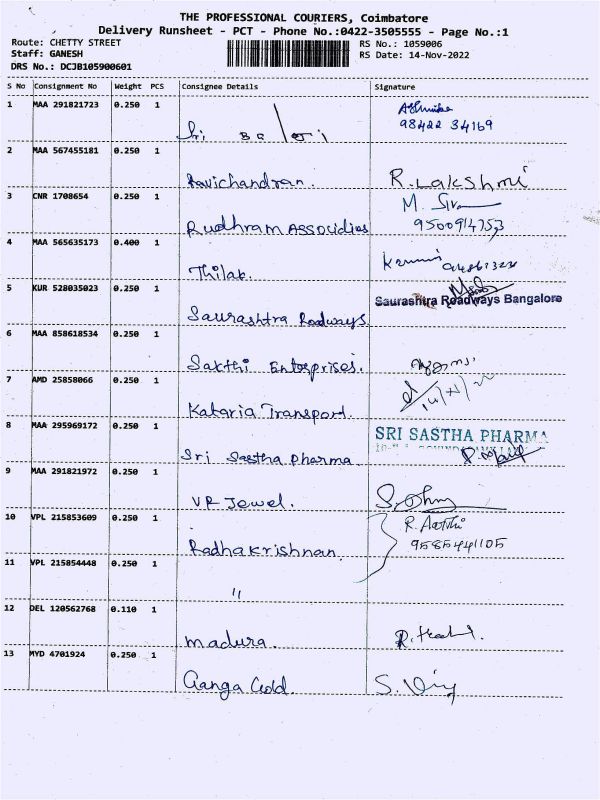 THE PROFESSIONAL COURIERS, Coimbatore
Delivery Runsheet - PCT - Phone No.:0422-3505555 - Page No.:1
Route: CHETTY STREET
RS No.: 1059006
Staff: GANESH
RS Date: 14-Nov-2022
DRS No.: DCJB105900601
S No Consignment No Weight PCS Consignee Details Signature
1 MAA 291821723 0.250 1
98422 34169
Sri Balaji
2 MAA 567455181 0.250 1
Ravichandran. R. Lakshmi
3 CNR 1708654 0.250 1 M. Siva
Rudhram Associates 9500914753
4 MAA 565635173 0.400 1
Thilak.
5 KUR 528035023 0.250 1
Saurashtra Roadways Bangalore
Saurashtra Roadways
6 MAA 858618534 0.250 1
Sakthi Enterprises.
7 AMD 25858066 0.250 1
Kataria Transport.
8 MAA 295969172 0.250 1 SRI SASTHA PHARMA
Sri Sastha pharma
9 MAA 291821972 0.250 1
VR Jewel.
10 VPL 215853609 0.250 1 R. Aarthi
Radhakrishnan. 9585441105
11 VPL 215854448 0.250 1
"
12 DEL 120562768 0.110 1
madura.
13 MYD 4701924 0.250 1
Ganga Gold.